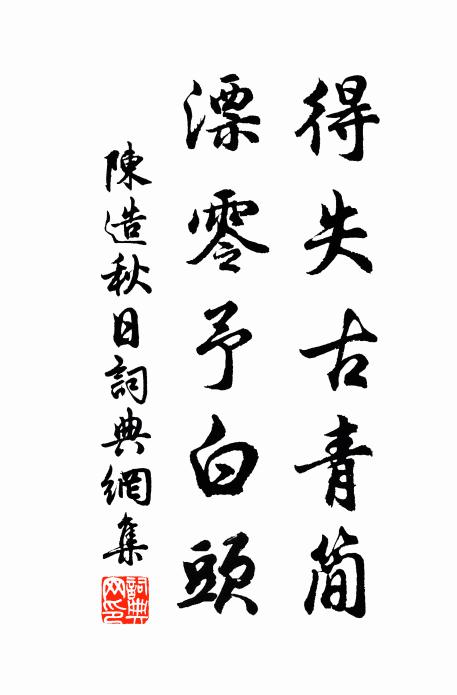 得失古青簡
漂零予白頭
陳造秋日詞典網集
詞典网印